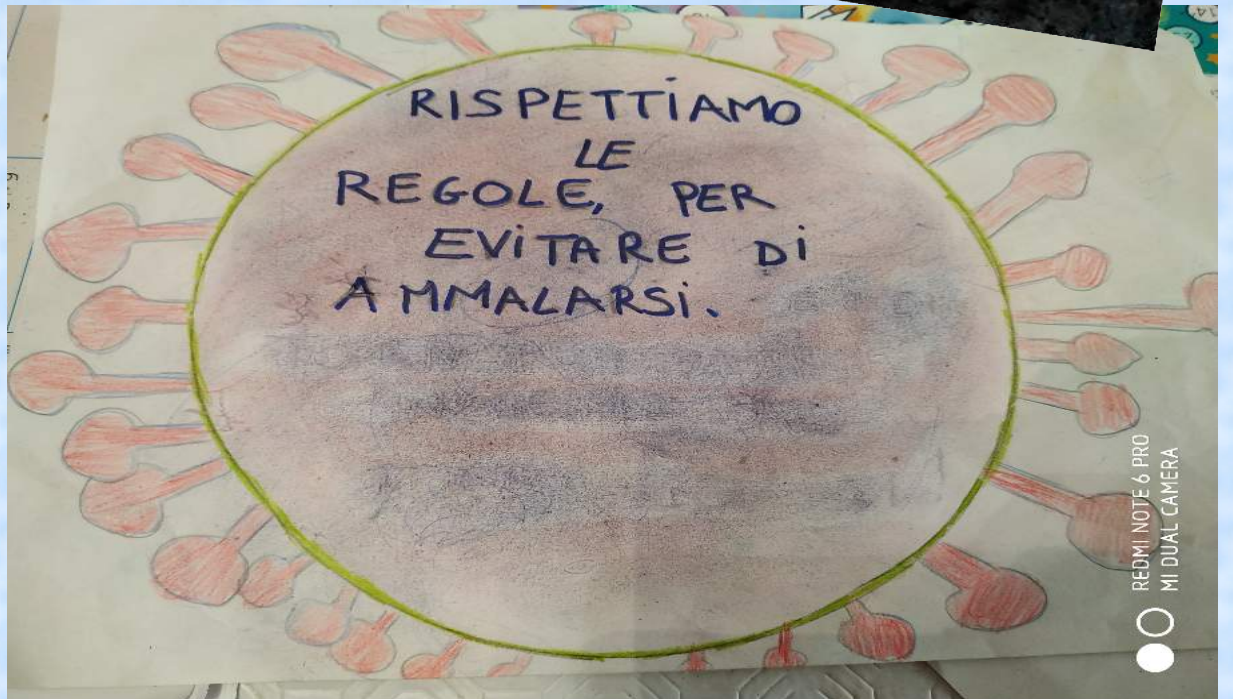 RISPETTIAMO
LE
REGOLE, PER
EVITARE DI
AMMALARSI.
REDMI NOTE 6 PRO
MI DUAL CAMERA